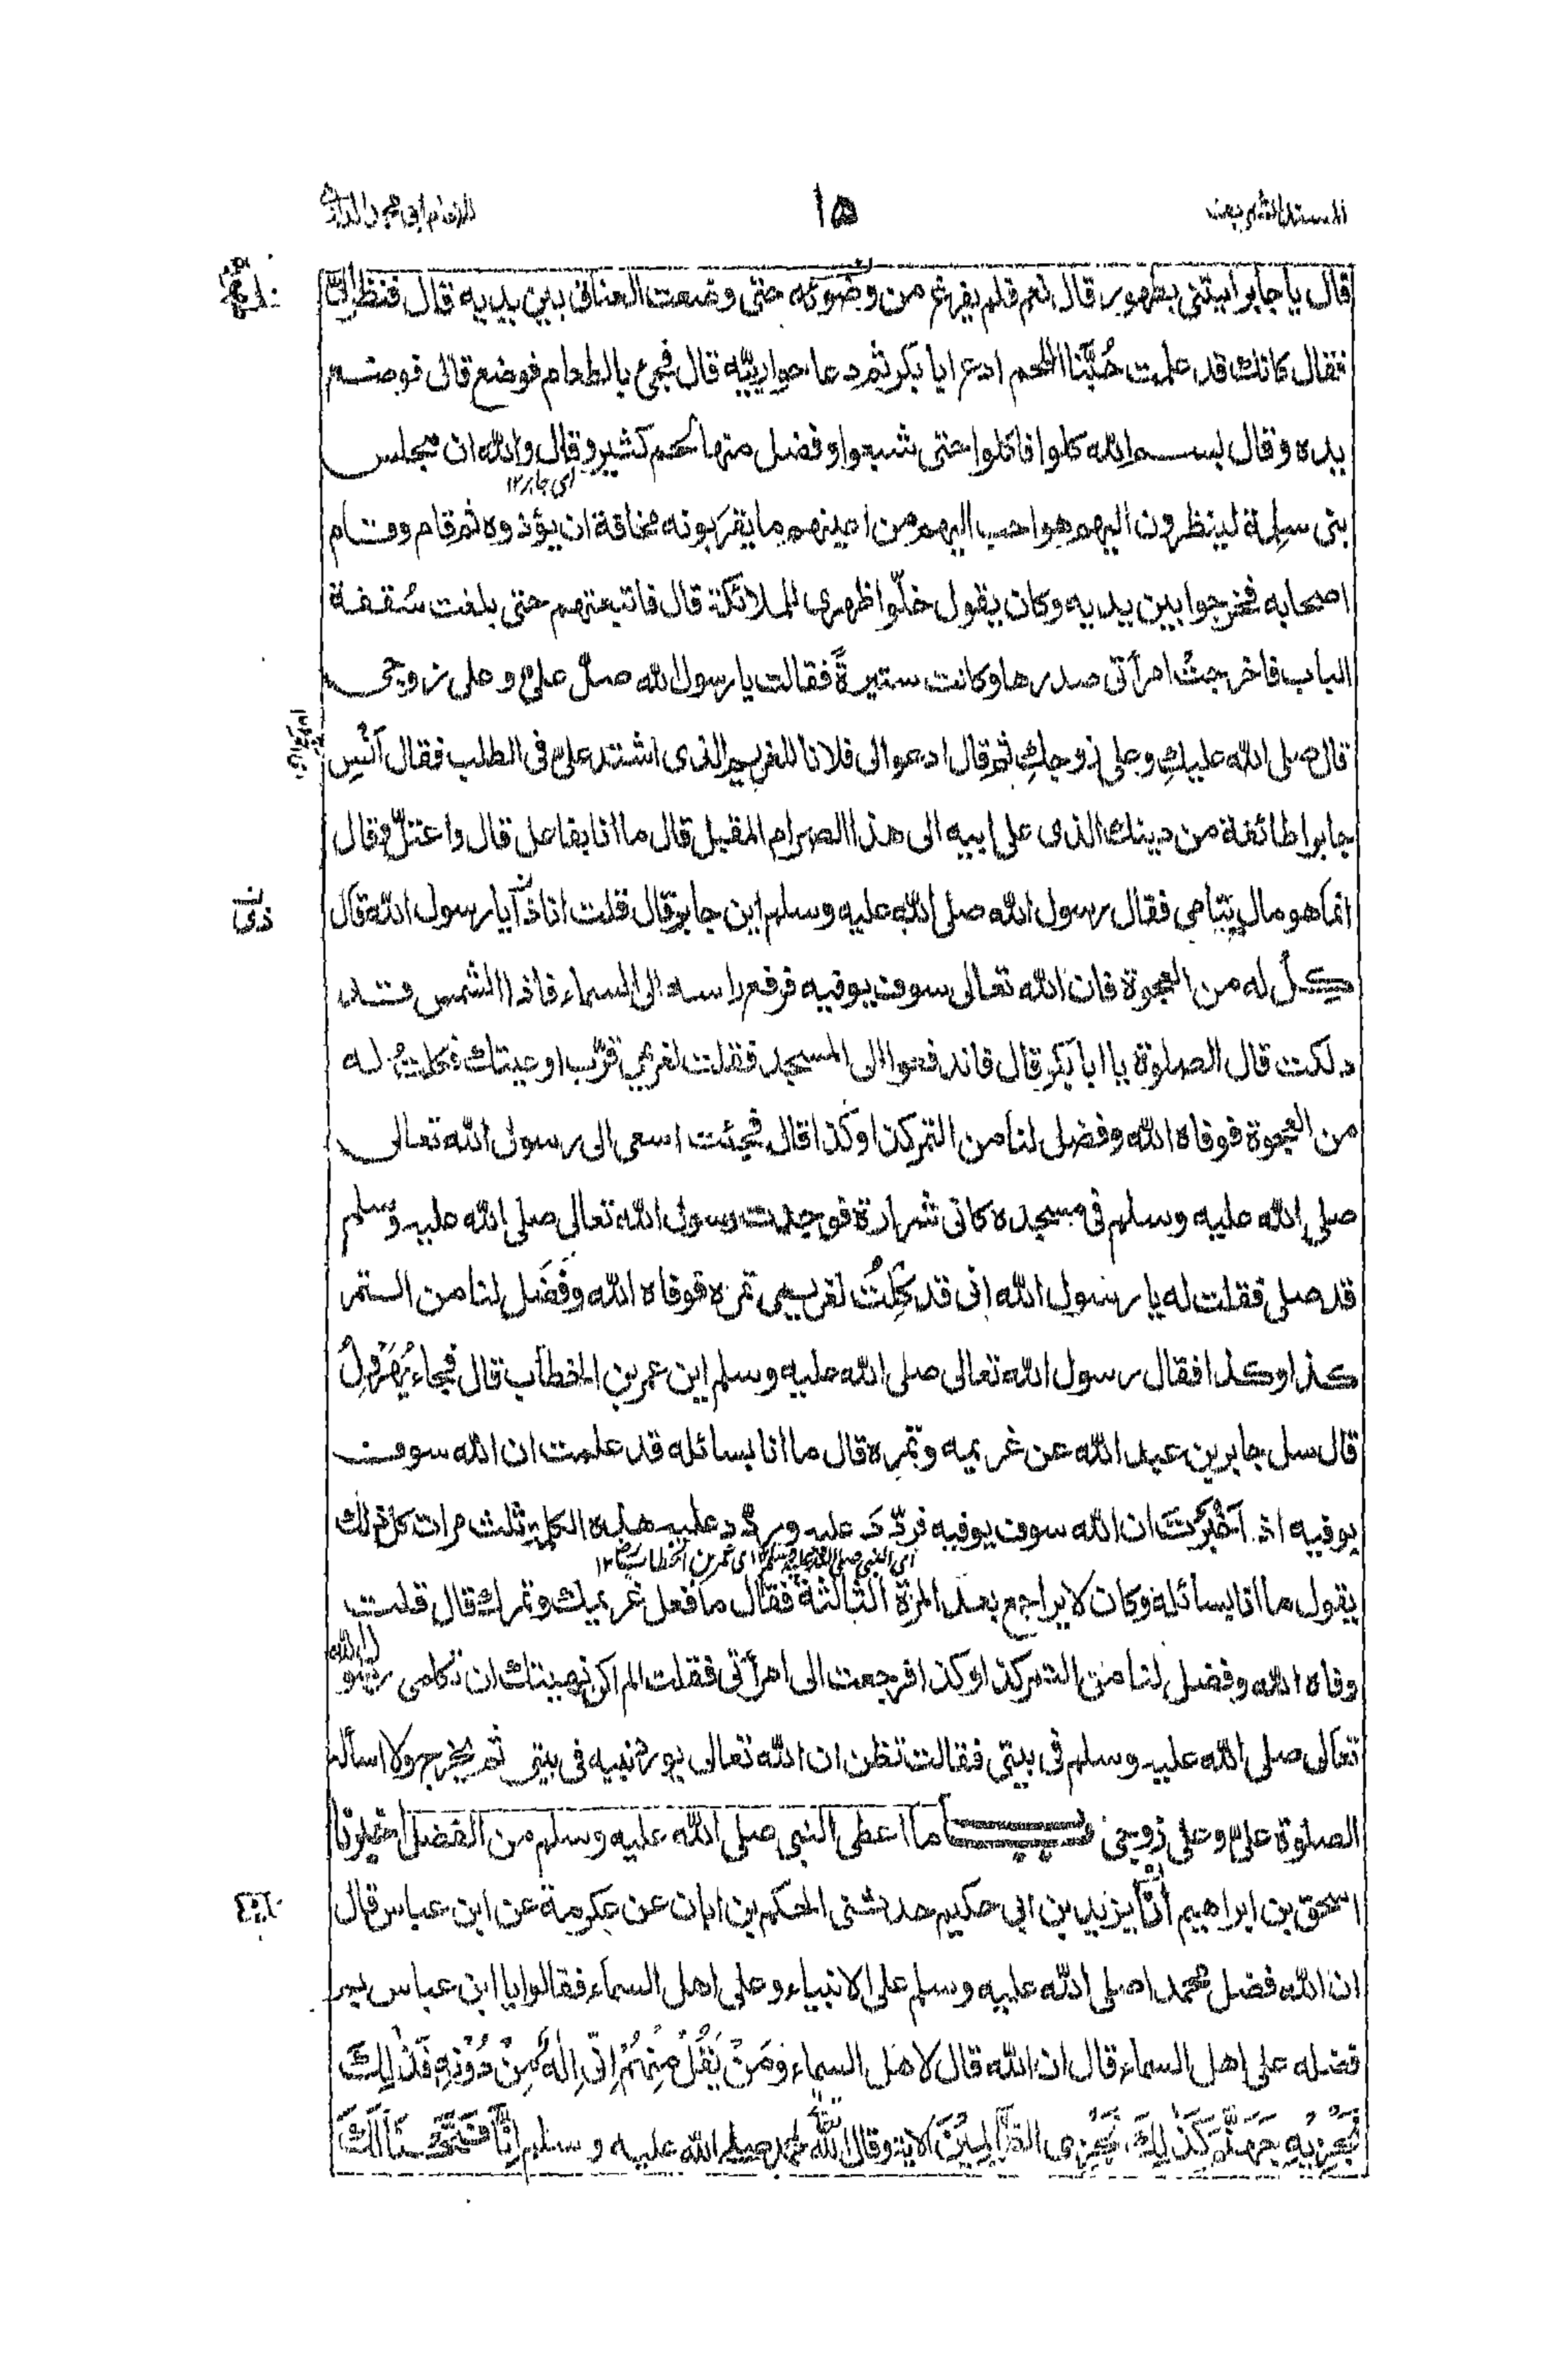 المسند الشريف
١٥
للامام ابى محمد الدارمى
قال يا جابر ايتنى بطهور قال نعم فلم يفرغ من وضوئه حتى وضعت العناق بين يديه قال فنظر الىّ
فقال كانك قد علمت حُبَّنا اللحم ادع ابا بكر ثم دعا حوارييّه قال فجئ بالطعام فوضع قال فوضع
يده وقال بسم الله كلوا فاكلوا حتى شبعوا وفضل منها لحم كثير وقال والله ان مجلس
اى جابر١٢
بنى سلِمة لينظرون اليهم هو احب اليهم من اعينهم ما يقربونه مخافة ان يؤذوه ثم قام وقام
اصحابه فخرجوا بين يديه وكان يقول خلّوا ظهرى للملائكة قال فاتبعتهم حتى بلغت سُقفة
الباب فاخرجت امرأتى صدرها وكانت ستيرةً فقالت يا رسول الله صلّ علىّ وعلى زوجى
قال صلى الله عليكِ وعلى زوجكِ ثم قال ادعوا لى فلانا للغريم الذى اشتد علىّ فى الطلب فقال آنْسِ
جابرا طائفة من دينك الذى على ابيه الى هذا الصرام المقبل قال ما انا بفاعل قال واعتلّ وقال
انما هو مال يتامى فقال رسول الله صلى الله عليه وسلم اين جابر قال قلت انا ذا يا رسول الله قال
كِلْ له من العجوة فان الله تعالى سوف يوفيه فرفع راسه الى السماء فاذا الشمس قد
دلكت قال الصلوة يا ابا بكر قال فاندفعوا الى المسجد فقلت لغريمى قرّب اوعيتك فكلت له
من العجوة فوفاه الله وفضل لنا من التمر كذا وكذا قال فجئت اسعى الى رسول الله تعالى
صلى الله عليه وسلم فى مسجده كانى شرارة فوجدت رسول الله تعالى صلى الله عليه وسلم
قد صلى فقلت له يا رسول الله انى قد كِلْتُ لغريمى تمره فوفاه الله وفَضَل لنا من التمر
كذا وكذا فقال رسول الله تعالى صلى الله عليه وسلم اين عمر بن الخطاب قال فجاء يُهَرْوِلُ
قال سل جابر بن عبد الله عن غريمه وتمره قال ما انا بسائله قد علمت ان الله سوف
يوفيه اذ اَخْبَرْتَ ان الله سوف يوفيه فردّدَ عليه وردّد عليه هذه الكلمة ثلث مرات كل ذلك
اى النبى صلى الله عليه وسلم١٢ اى عمر بن الخطاب ١٢
يقول ما انا بسائله وكان لا يراجع بعد المرة الثالثة فقال ما فعل غريمك وتمرك قال قلت
وفاه الله وفضل لنا من التمر كذا وكذا فرجعت الى امرأتى فقلت الم اكن نهيتك ان تكلمى رسول الله
تعالى صلى الله عليه وسلم فى بيتى فقالت تظن ان الله تعالى يورد نبيه فى بيتى ثم يخرج ولا اسأله
الصلوة علىّ وعلى زوجى باب ما اعطى النبى صلى الله عليه وسلم من الفضل اخبرنا
اسحق بن ابراهيم اَنَا يزيد بن ابى حكيم حدثنى الحكم بن ابان عن عكرمة عن ابن عباس قال
ان الله فضل محمدا صلى الله عليه وسلم على الانبياء وعلى اهل السماء فقالوا يا ابن عباس بم
فضله على اهل السماء قال ان الله قال لاهل السماء وَمَنْ يَقُلْ مِنْهُمْ اِنِّى اِلٰهٌ مِنْ دُوْنِهٖ فَذٰلِكَ
نَجْزِيْهِ جَهَنَّمَ كَذٰلِكَ نَجْزِى الظَّالِمِيْنَ الآية وقال الله تعالى لمحمد صلى الله عليه وسلم اِنَّا فَتَحْنَا لَكَ